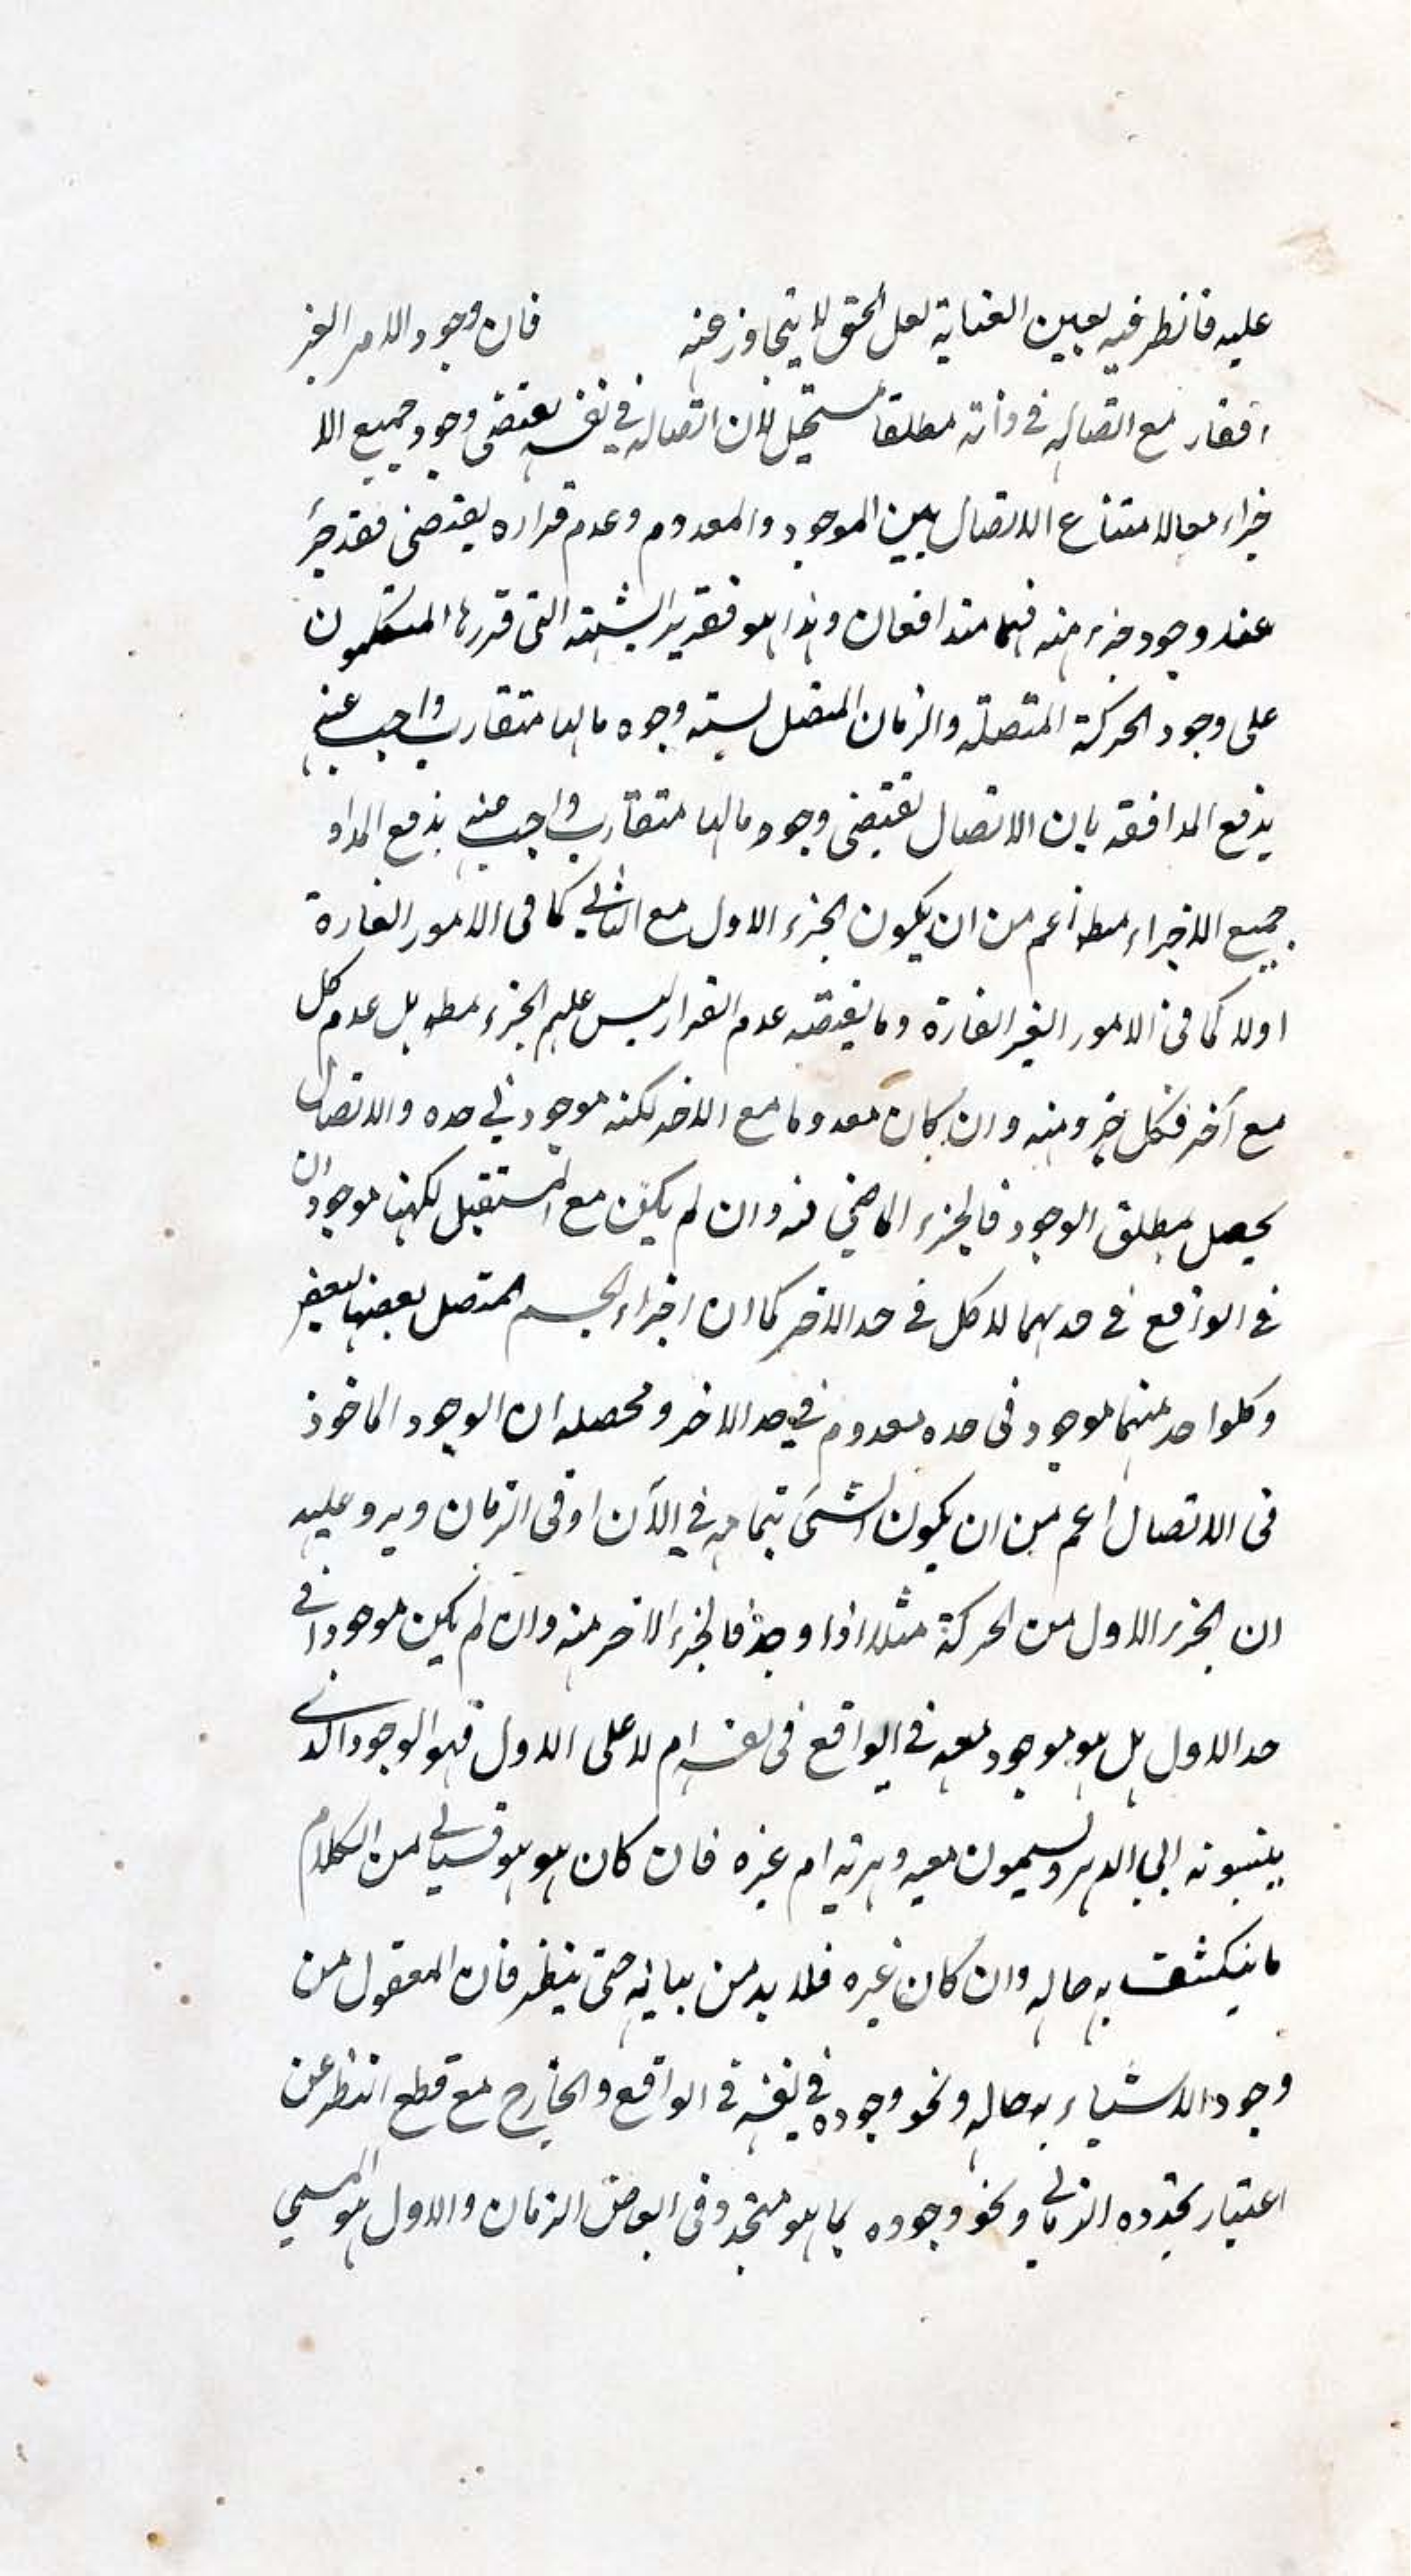 عليه فانظر فيه بعين العناية لعل الحق لا يتجاوز عنه فان وجود الامر الغير
مع اتصاله في ذاته مطلقا مستحيل لان اتصاله في نفسه يقتضى وجود جميع الا
جزاء معا لامتناع الاتصال بين الموجود والمعدوم وعدم قراره يقتضى فقد جزء
عند وجود جزء منه فهما متدافعان وهذا هو تقرير الشبهة التى قررها المتكلمون
على وجود الحركة المتصلة والزمان المتصل لستة وجوه مالها متقارب واجيب عنه
بدفع المدافعة بان الاتصال يقتضى وجود مالها متقارب واجيب عنه بدفع المداو
جميع الاجزاء مط اعم من ان يكون الجزء الاول مع الثاني كما فى الامور القارة
اولا كما فى الامور الغير القارة وما يقتضيه عدم القرار ليس عدم الجزء مط بل عدم كل
مع آخر فكل جزء منه وان كان معدوما مع الاخر لكنه موجود في حده والاتصال
يحصل بمطلق الوجود فالجزء الماضي منه وان لم يكن مع المستقبل لكنهما موجودان
فى الواقع في حديهما لا كل في حد الاخر كما ان اجزاء الجسم المتصل بعضها ببعض
وكلواحد منهما موجود فى حده معدوم في حد الاخر ومحصله ان الوجود الماخوذ
فى الاتصال اعم من ان يكون الشئ بتمامه في الآن او فى الزمان ويرد عليه
ان الجزء الاول من الحركة مثلا اذا وجد فالجزء الاخر منه وان لم يكن موجودا في
حد الاول بل هو موجود معه في الواقع فى نفسه ام لا على الاول فهو الوجود الذي
ينسبونه الى الدهر ويسمون معيه دهرية ام غيره فان كان هو هو فسياتي من الكلام
ما ينكشف به حاله وان كان غيره فلا بد من بيانه حتى ينظر فان المعقول من
وجود الاشياء به حاله ونحو وجوده في نفسه فى الواقع والخارج مع قطع النظر عن
اعتبار تجدده الزماني ونحو وجوده بما هو متجدد فى الزمان والاول هو المسمي